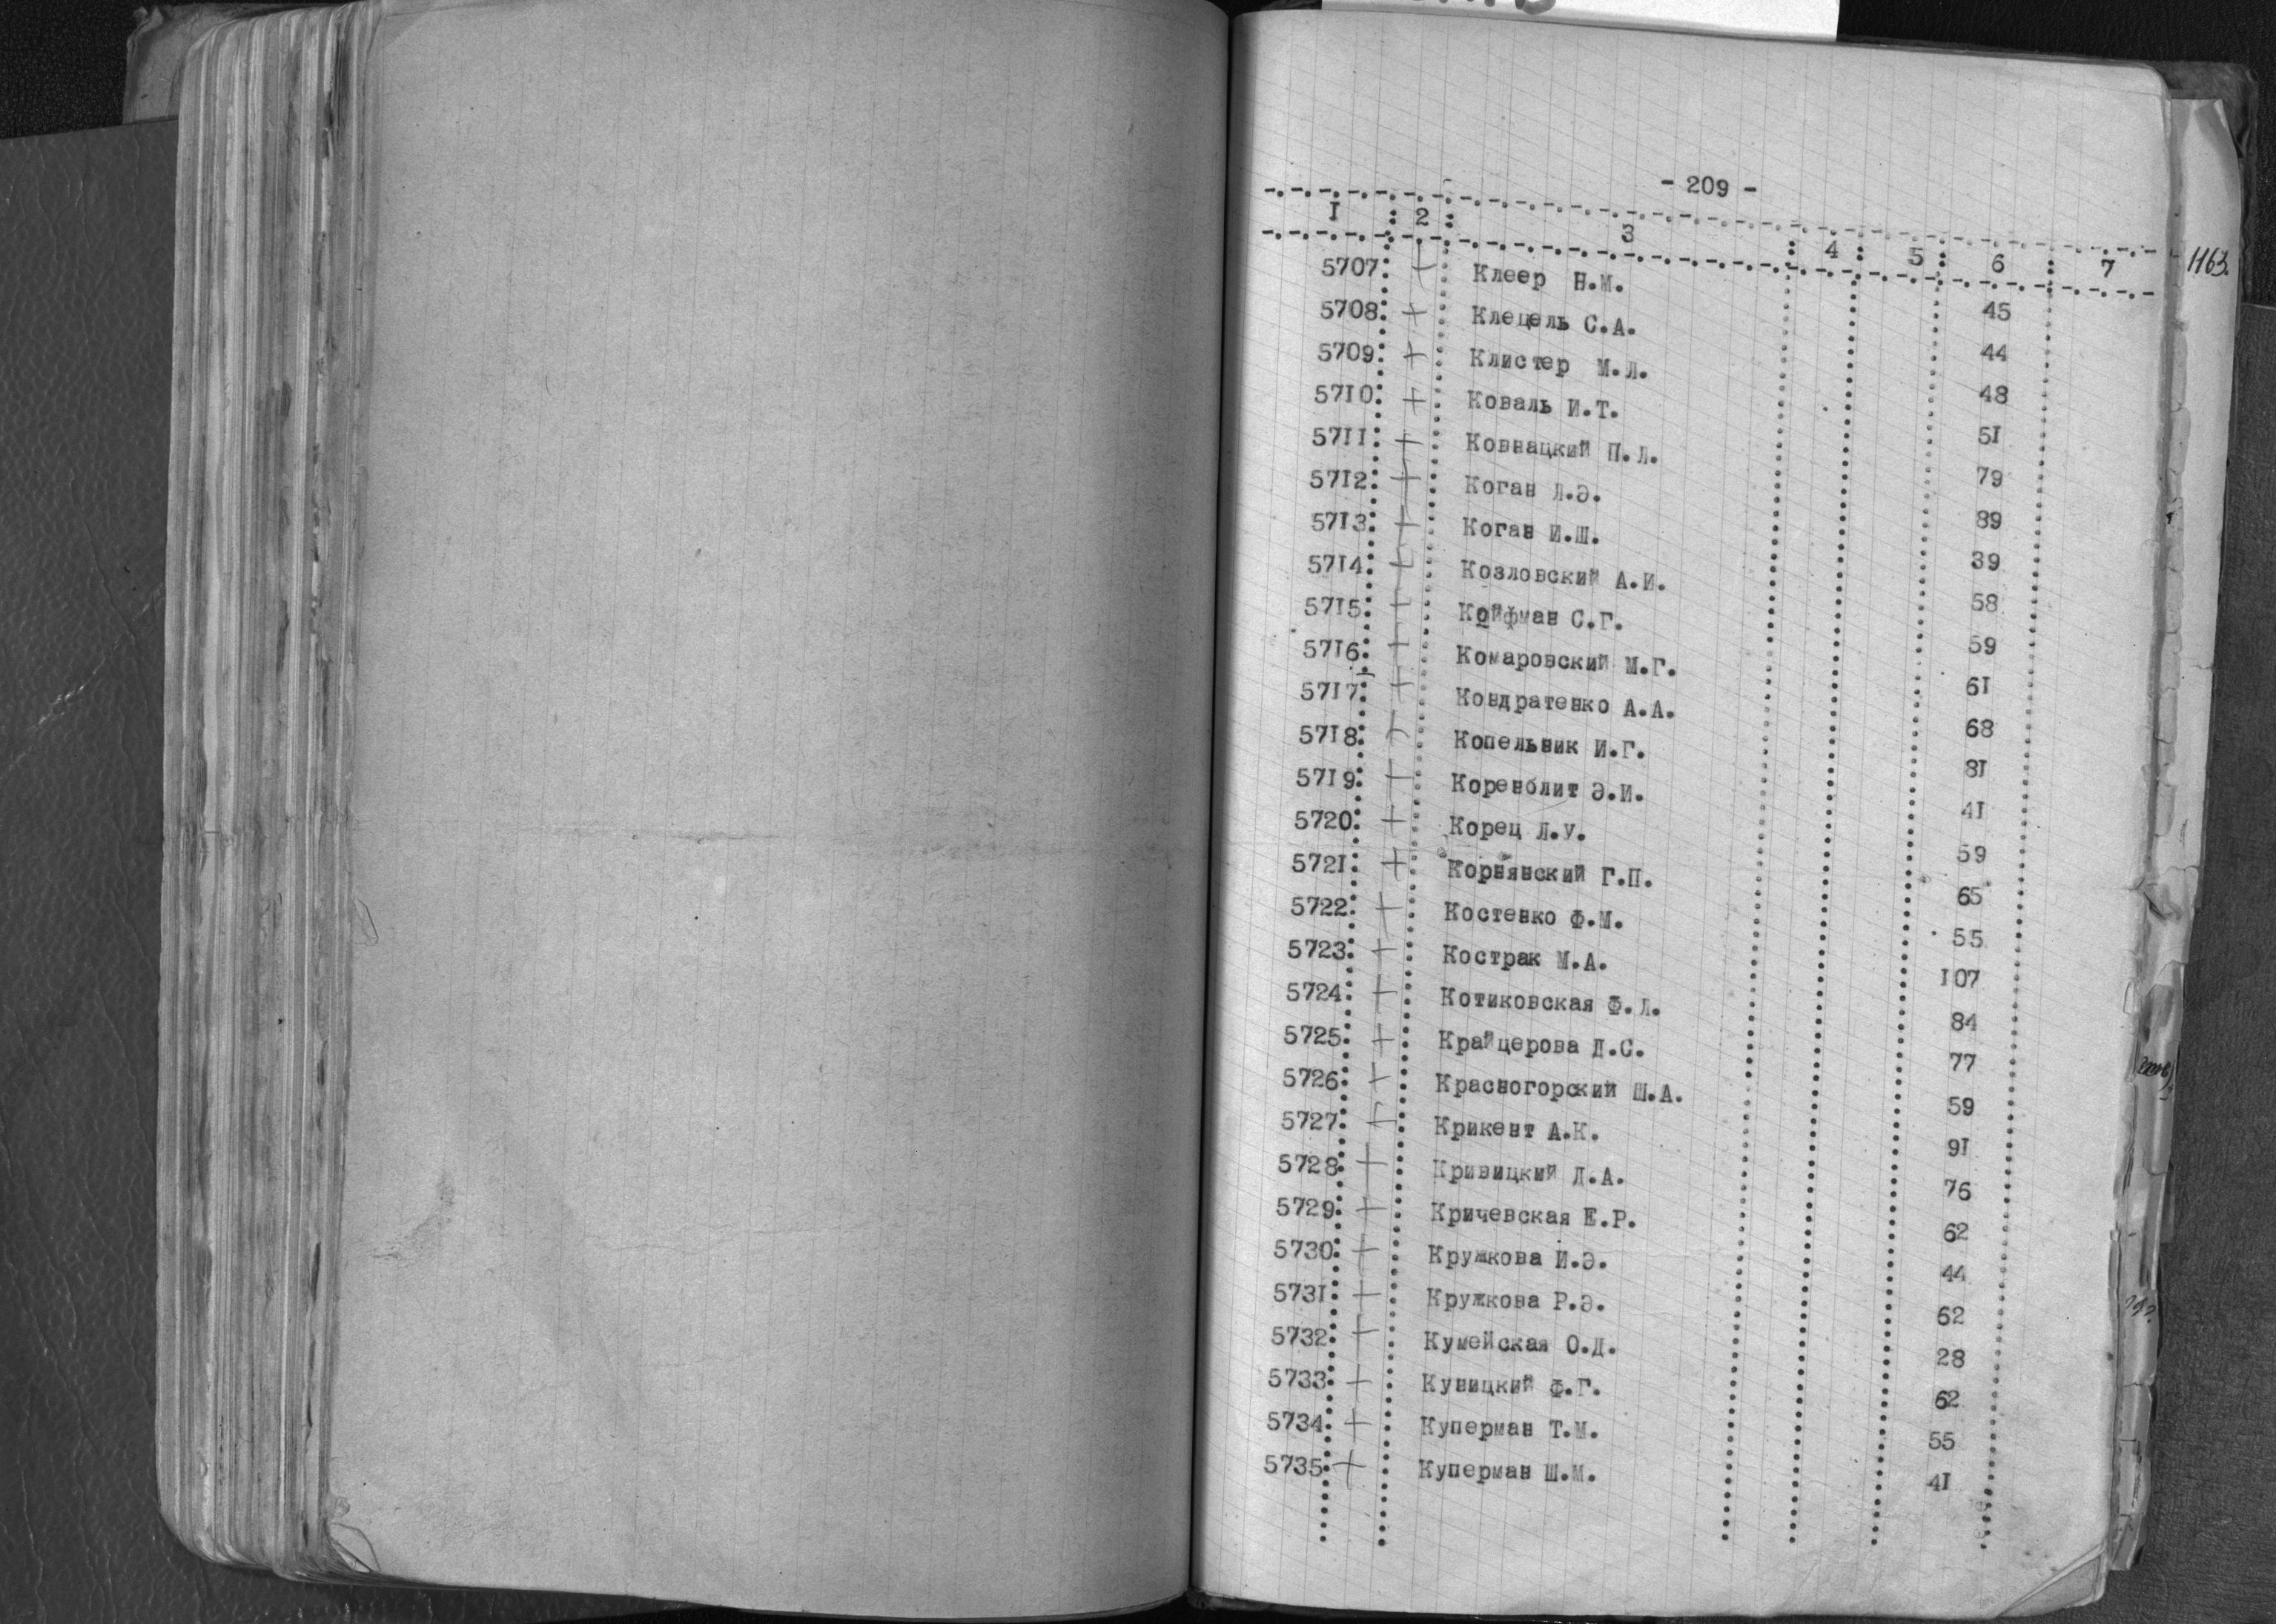 - 209 -
I : 2 : 3 : 4 : 5 : 6 : 7
1163.
5707: + : Клеер Н.М. 45
5708: + : Клецель С.А. 44
5709: + : Клистер М.Л. 48
5710: + : Коваль И.Т. 5I
57II: + : Ковнацкий П.Л. 79
57I2: + : Коган Л.Э. 89
57I3: + : Коган И.Ш. 39
57I4: + : Козловский А.И. 58
57I5: + : Койфман С.Г. 59
57I6: + : Комаровский М.Г. 6I
57I7: + : Кондратенко А.А. 68
57I8: + : Копельник И.Г. 8I
57I9: + : Коренблит Э.И. 4I
5720: + : Корец Л.У. 59
572I: + : Корнянский Г.П. 65
5722: + : Костенко Ф.М. 55
5723: + : Кострак М.А. I07
5724: + : Котиковская Ф.Л. 84
5725: + : Крайцерова Д.С. 77
5726: + : Красногорский Ш.А. 59
5727: + : Крикент А.К. 9I
5728: + : Кривицкий Д.А. 76
5729: + : Кричевская Е.Р. 62
5730: + : Кружкова И.Э. 44
573I: + : Кружкова Р.Э. 62
5732: + : Кумейская О.Д. 28
5733: + : Куницкий Ф.Г. 62
5734: + : Куперман Т.М. 55
5735: + : Куперман Ш.М. 4I